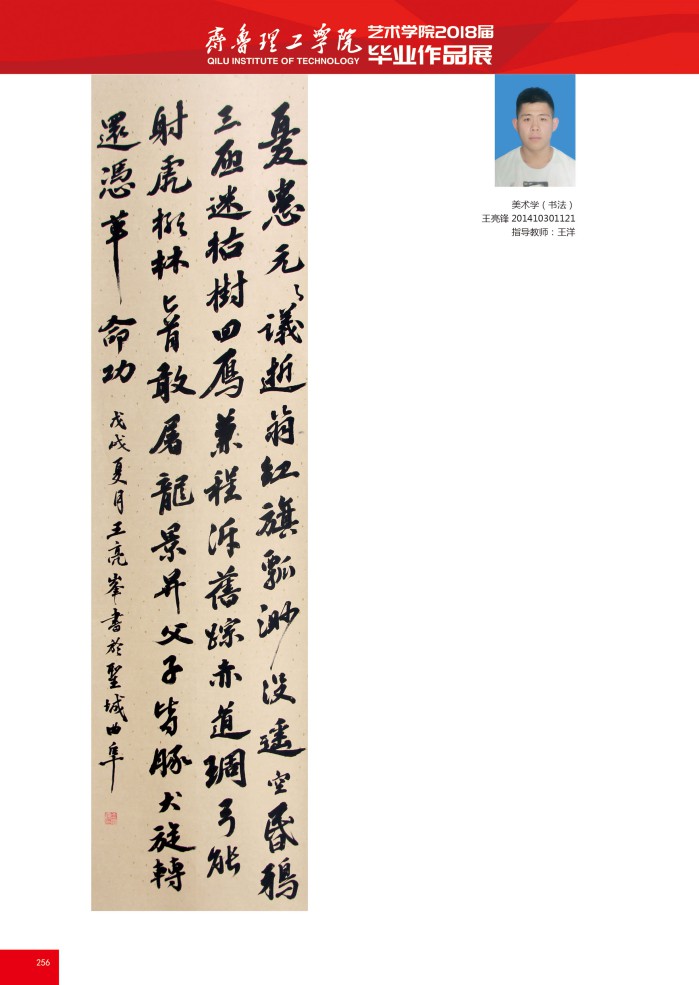 齊魯理工學院
QILU INSTITUTE OF TECHNOLOGY
艺术学院2018届
毕业作品展
憂患元々議逝翁紅旗瓢渺没遥空昏鴉
三匝迷枯樹回鴈兼程泝舊踪赤道琱弓能
射虎椰林匕首敢屠龍景升父子皆豚犬旋轉
還憑革命功
戊戌夏月王亮峯書於聖城曲阜
美术学（书法）
王亮锋 201410301121
指导教师：王洋
256